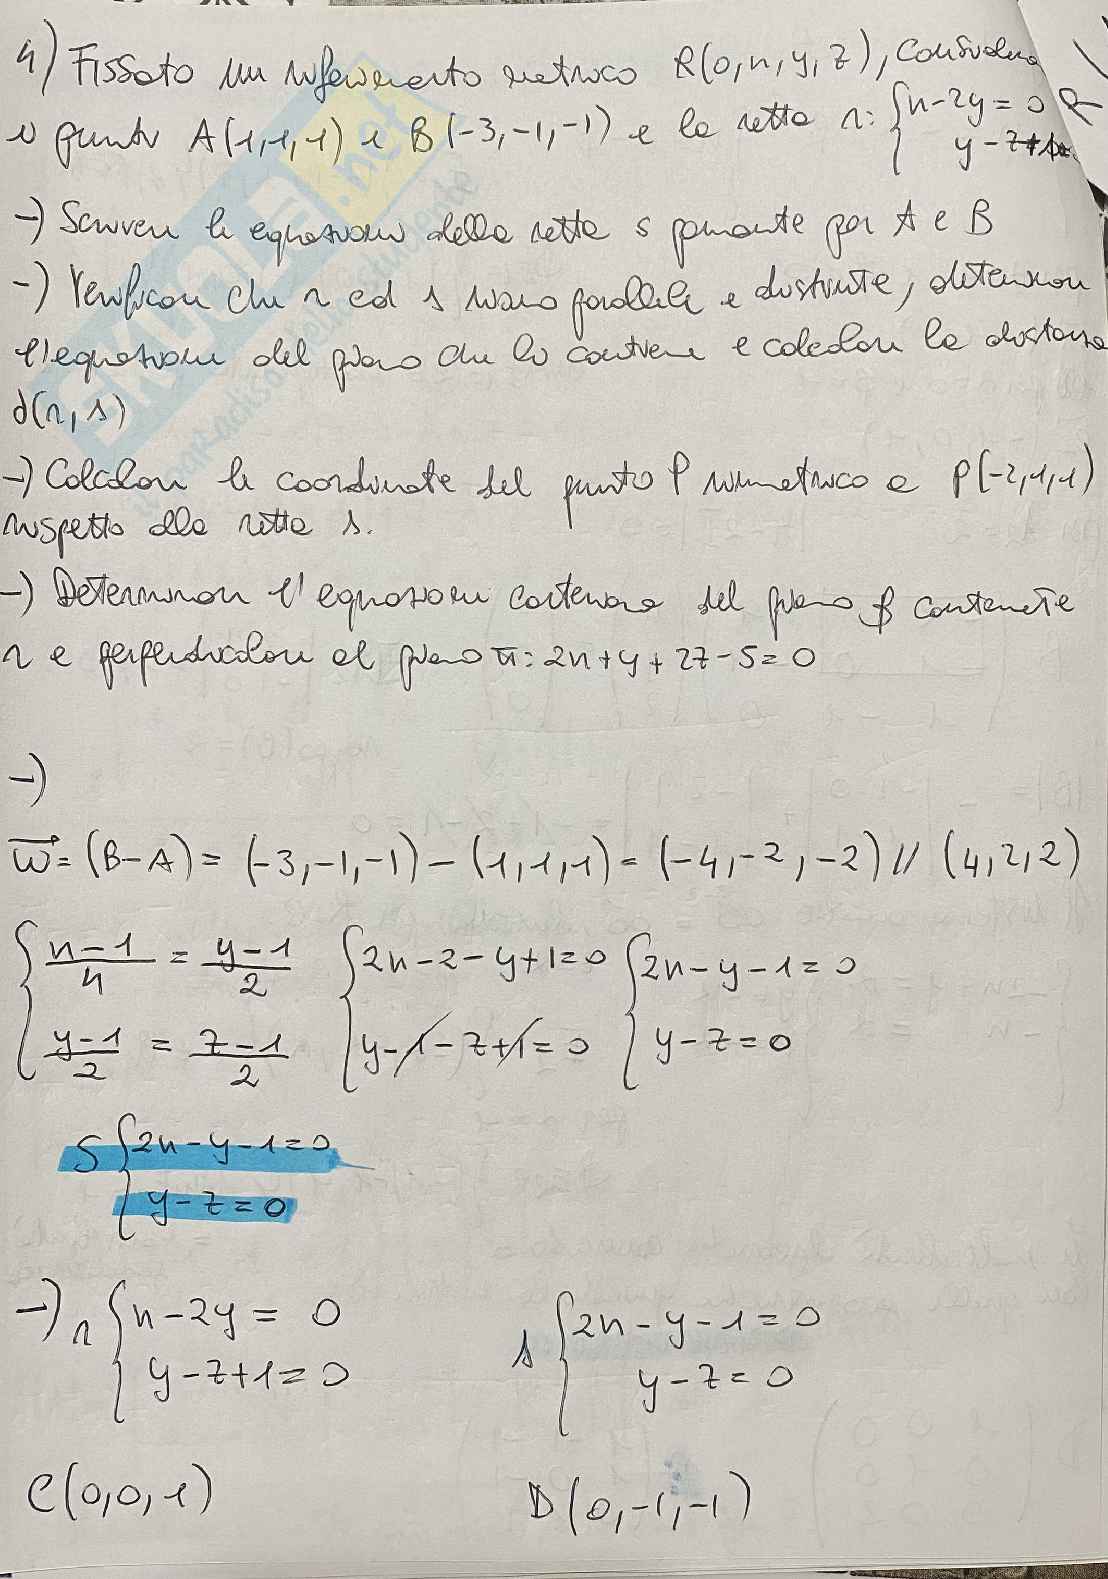 4) Fissato un riferimento metrico R(O,x,y,z), considera
i punti A(1,1,1) e B(-3,-1,-1) e la retta r: { x-2y=0
y-z+1=
-) Scrivere le equazioni della retta s passante per A e B
-) Verificare che r ed s siano parallele e distinte, determinare
l'equazione del piano che le contiene e calcolare la distanza
d(r,s)
-) Calcolare le coordinate del punto P simmetrico a P(-2,1,1)
rispetto alla retta s.
-) Determinare l'equazione cartesiana del piano β contenete
r e perpendicolare al piano π: 2x+y+2z-5=0
-)
w = (B-A) = (-3,-1,-1) - (1,1,1) = (-4,-2,-2) // (4,2,2)
{ x-1/4 = y-1/2 { 2x-2-y+1=0 { 2x-y-1=0
y-1/2 = z-1/2 y-1-z+1=0 y-z=0
S { 2x-y-1=0
y-z=0
-) r { x-2y=0 s { 2x-y-1=0
y-z+1=0 y-z=0
C(0,0,1) D(0,-1,-1)
SKUOLA.net